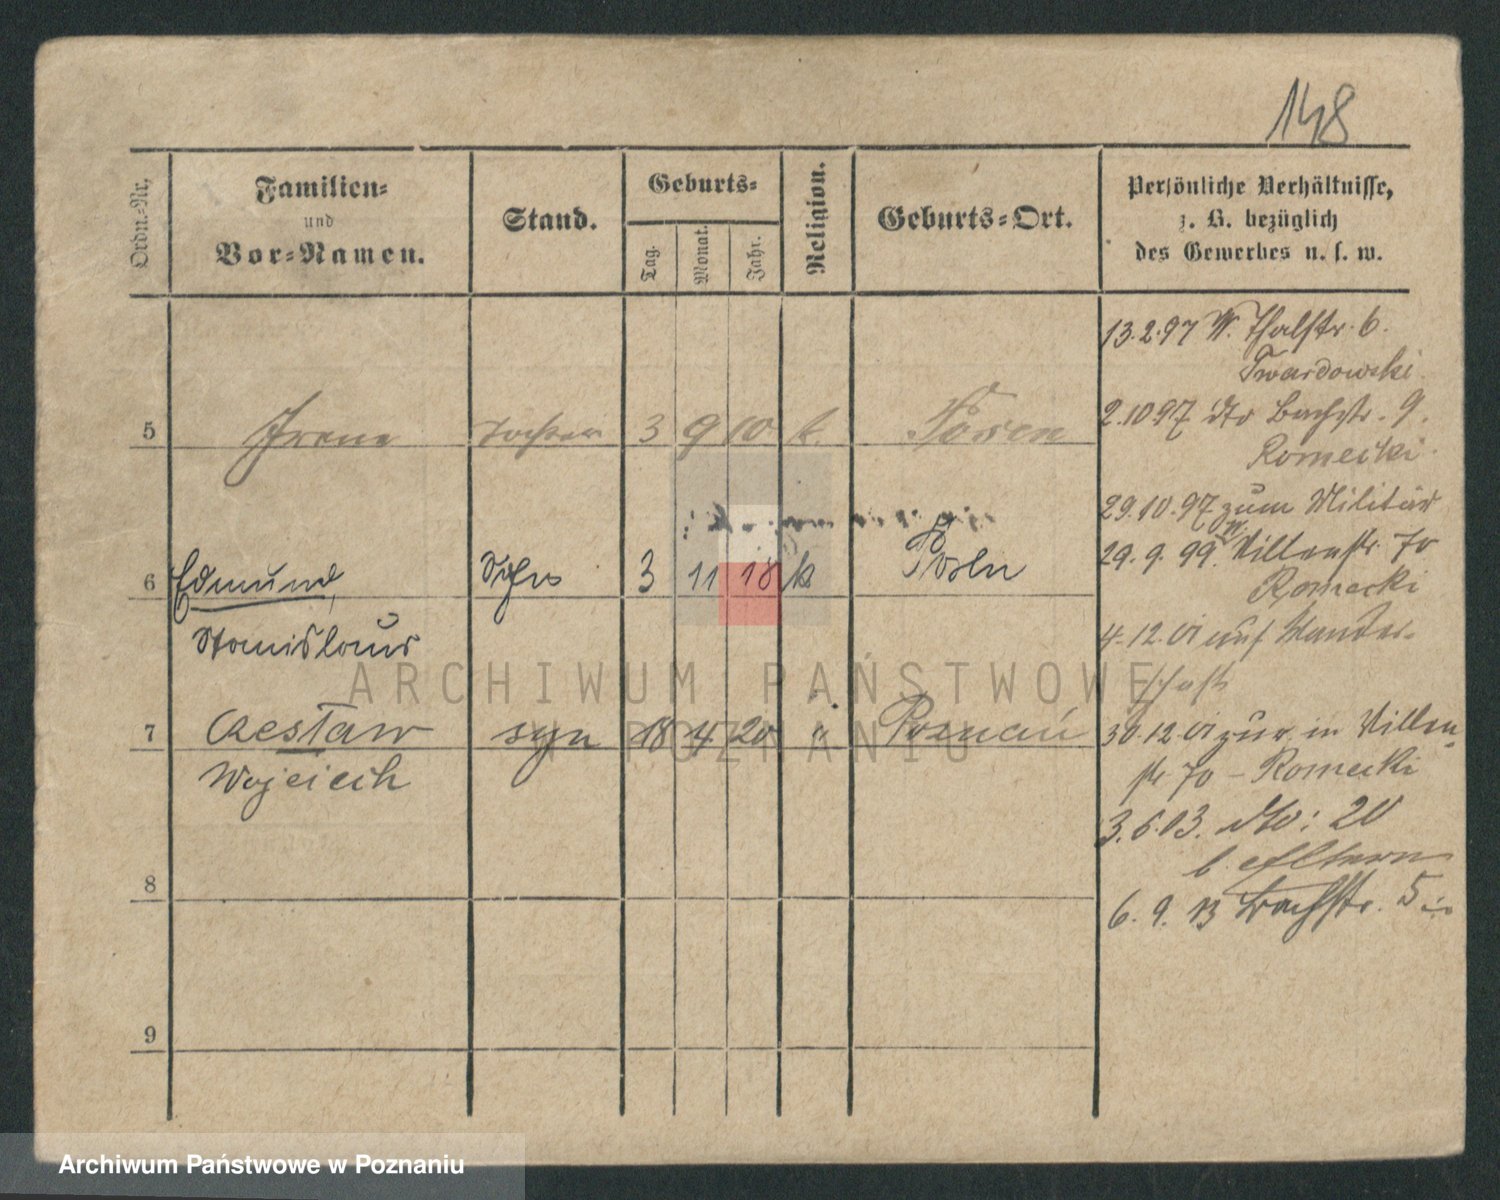 148
Ordn.-Nr.
Familien-
und
Vor-Namen.
Stand.
Geburts-
Tag.
Monat.
Jahr.
Religion.
Geburts-Ort.
Persönliche Verhältnisse,
z. B. bezüglich
des Gewerbes u. s. w.
13.2.97 W. Thalstr. 6.
Twardowski.
5 Irene Tochter 3 9 10 k. Posen
2.10 97 dto Bachstr. 9.
Romecki.
29.10.97 zum Militär
6 Edmund, Sohn 3 11 18 k Posen
29. 9. 99. Villenstr. 70
Romecki
Stanislaus
4.12.01 auf Wander-
schaft
7 Czesław syn 18 4 20 " Poznań
30.12.01 zur. in Villen
str 70 – Romecki
Wojciech
3.6.03. dto: 20
b. Eltern
8
6. 9. 13 Bachstr. 5
9
ARCHIWUM PAŃSTWOWE
W POZNANIU
Archiwum Państwowe w Poznaniu